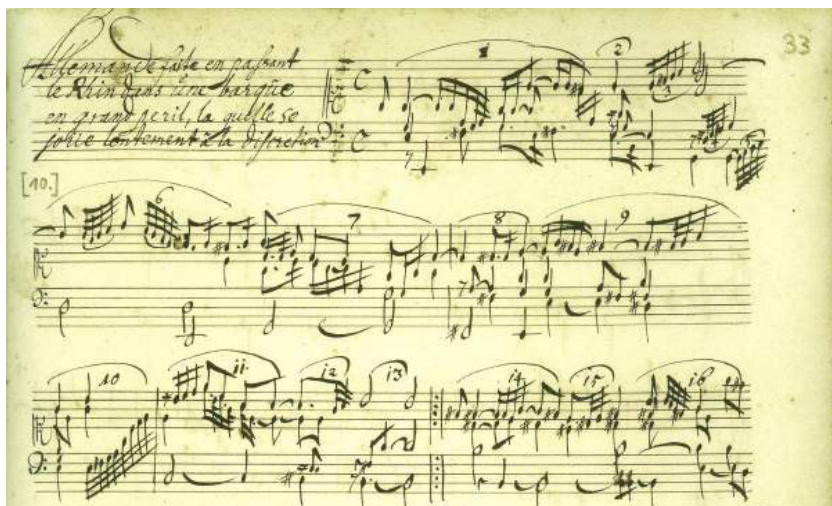 33
Allemande faite en passant
le Rhin dans une barque
en grand peril, la quelle se
joüe lentement à la discretion
1 2 3 4 5
[10.]
6 7 8 9
10 ii 12 13 14 15 16